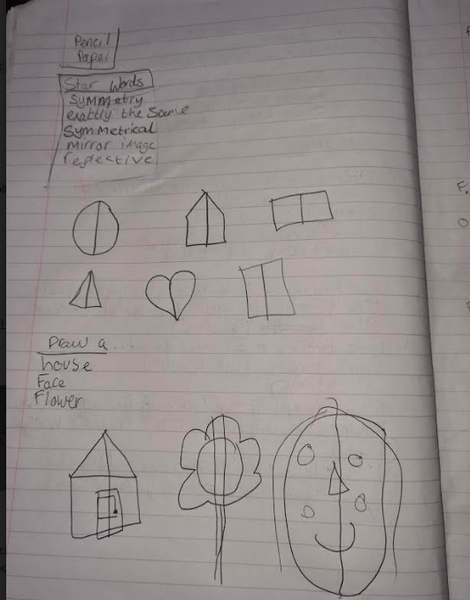 Pencil
Paper
Star Words
Symmetry
exactly the Same
Symmetrical
mirror image
reflective
Draw a...
house
Face
Flower